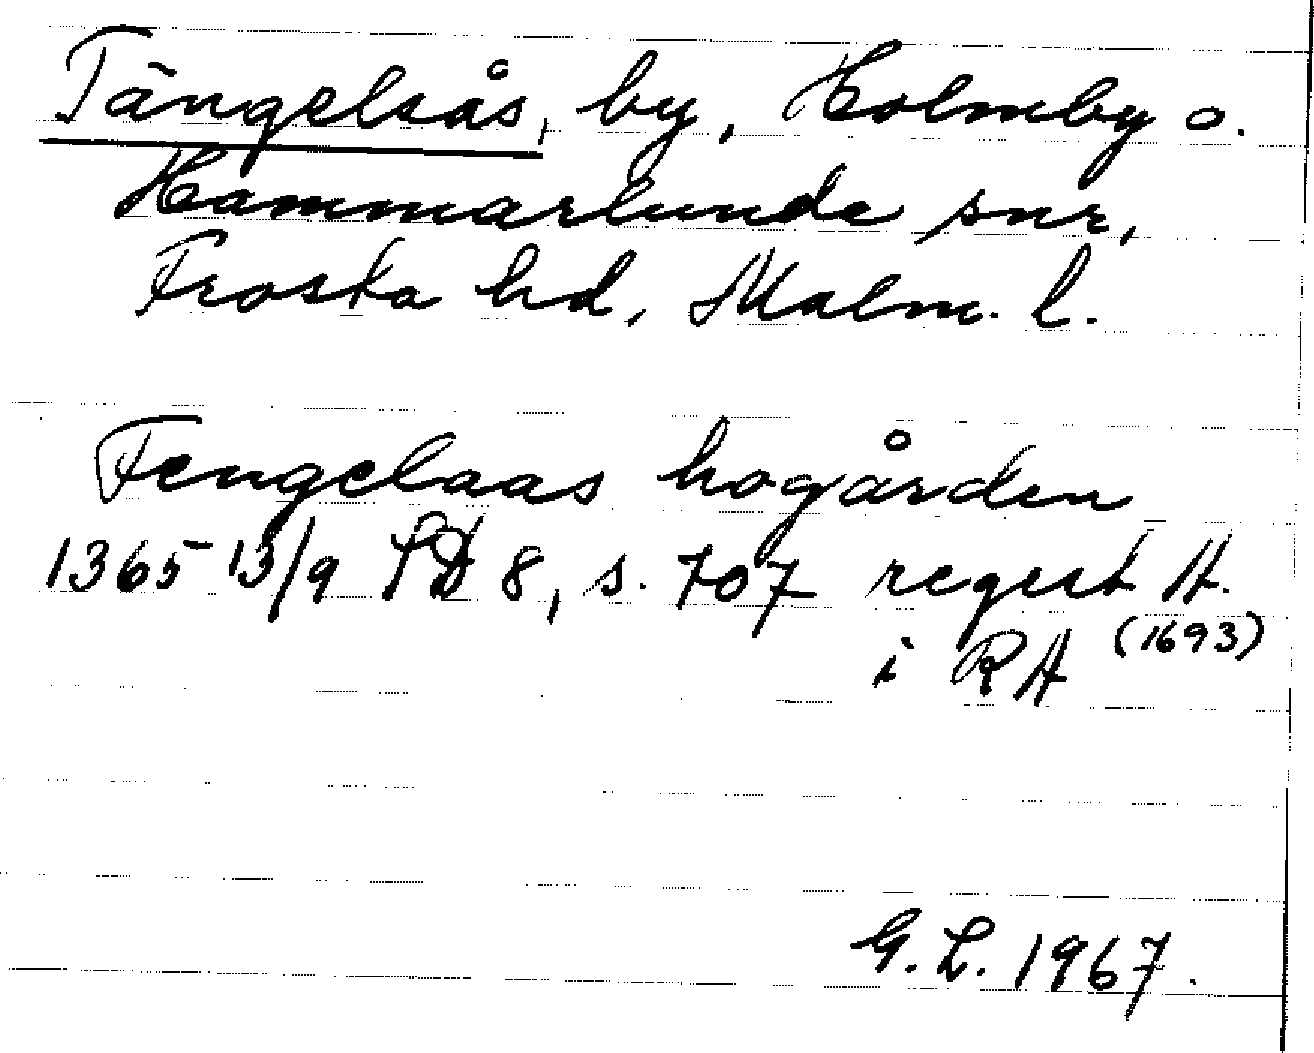 Tängelsås, by, Holmby o.
Hammarlunda snr,
Frosta hd, Malm. l.
Tengelaas hogården
1365 13/9 SD 8, s. 707 regest A.
i RA (1693)
G. L. 1967.